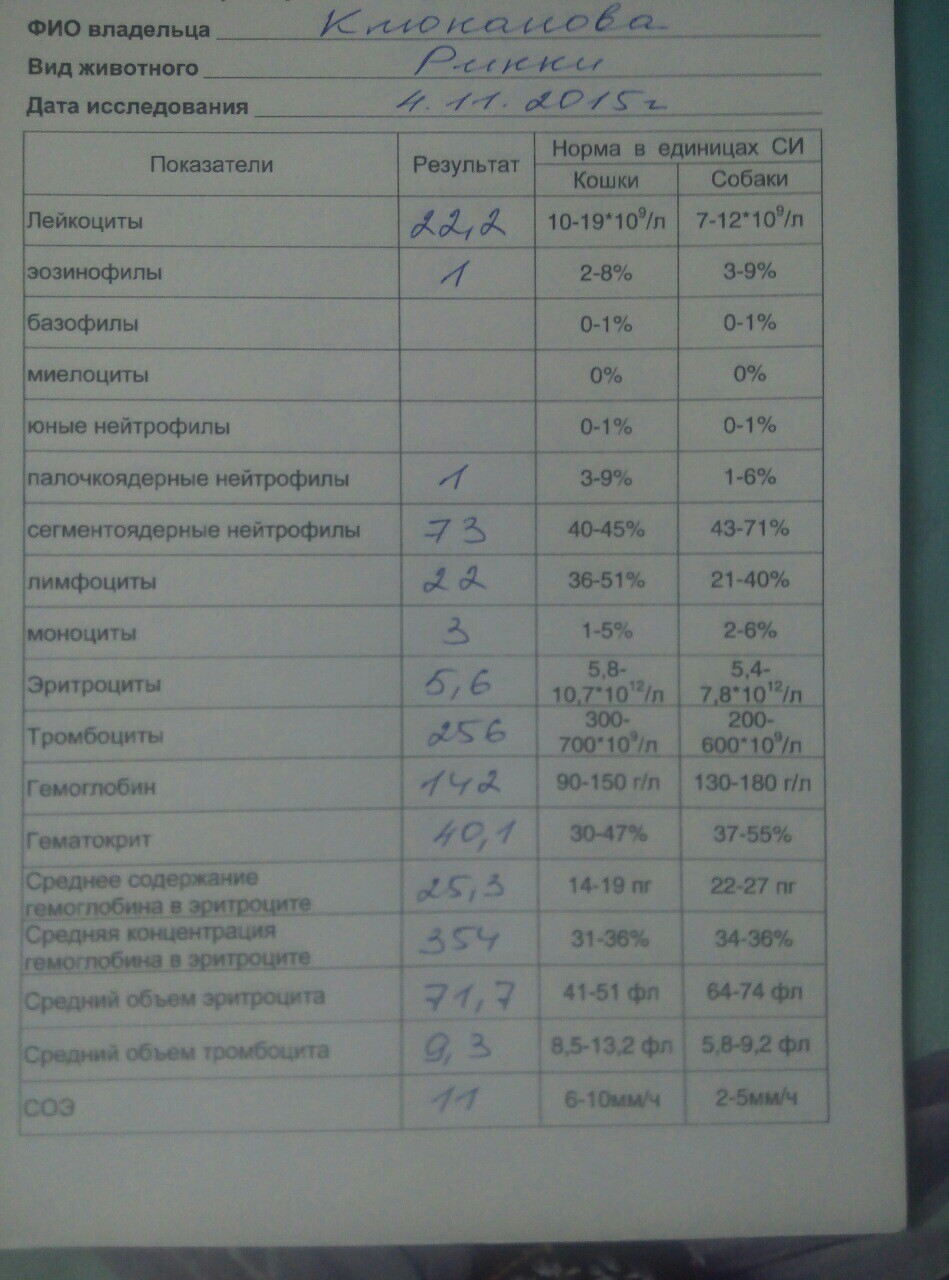 ФИО владельца Клюканова
Вид животного Рикки
Дата исследования 4.11.2015г
Показатели Результат Норма в единицах СИ
Кошки Собаки
Лейкоциты 22,2 10-19*10⁹/л 7-12*10⁹/л
эозинофилы 1 2-8% 3-9%
базофилы 0-1% 0-1%
миелоциты 0% 0%
юные нейтрофилы 0-1% 0-1%
палочкоядерные нейтрофилы 1 3-9% 1-6%
сегментоядерные нейтрофилы 73 40-45% 43-71%
лимфоциты 22 36-51% 21-40%
моноциты 3 1-5% 2-6%
Эритроциты 5,6 5,8- 5,4-
10,7*10¹²/л 7,8*10¹²/л
Тромбоциты 256 300- 200-
700*10⁹/л 600*10⁹/л
Гемоглобин 142 90-150 г/л 130-180 г/л
Гематокрит 40,1 30-47% 37-55%
Среднее содержание
гемоглобина в эритроците 25,3 14-19 пг 22-27 пг
Средняя концентрация
гемоглобина в эритроците 354 31-36% 34-36%
Средний объем эритроцита 71,7 41-51 фл 64-74 фл
Средний объем тромбоцита 9,3 8,5-13,2 фл 5,8-9,2 фл
СОЭ 11 6-10мм/ч 2-5мм/ч